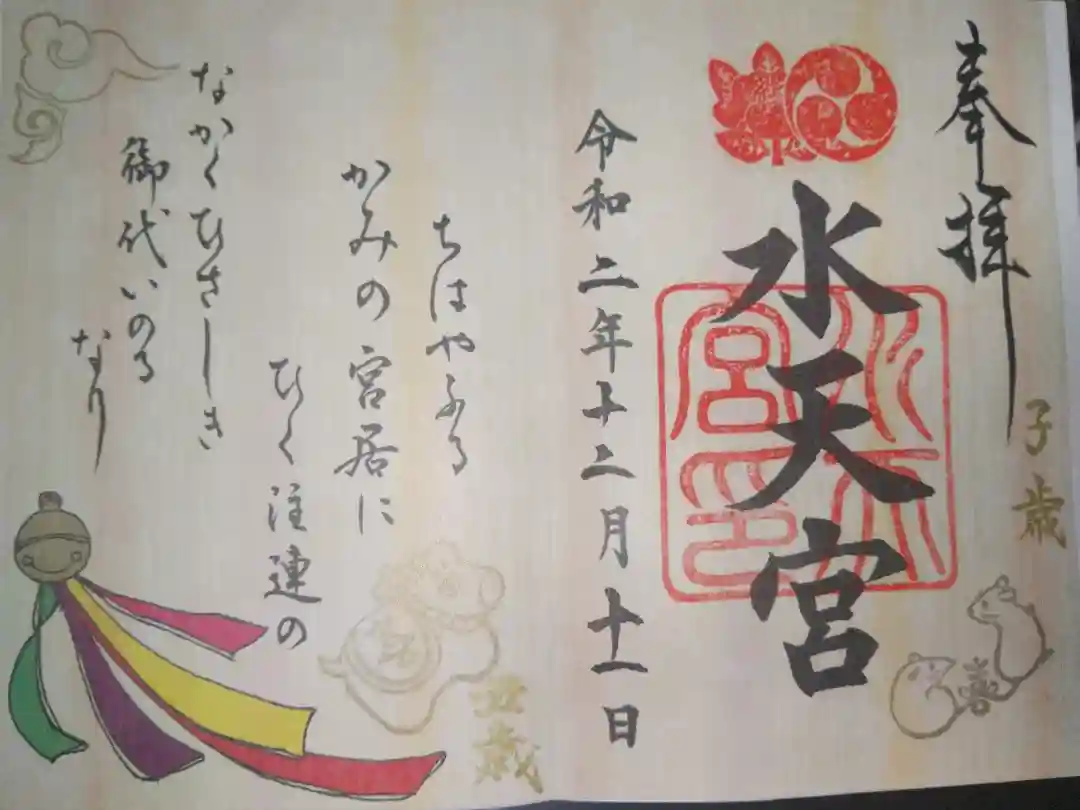 奉拝
子歳
水天宮
水天宮印
令和二年十二月十一日
ちはやふる
かみの宮居に
ひく注連の
なかくひさしき
御代いのる
なり
丑歳